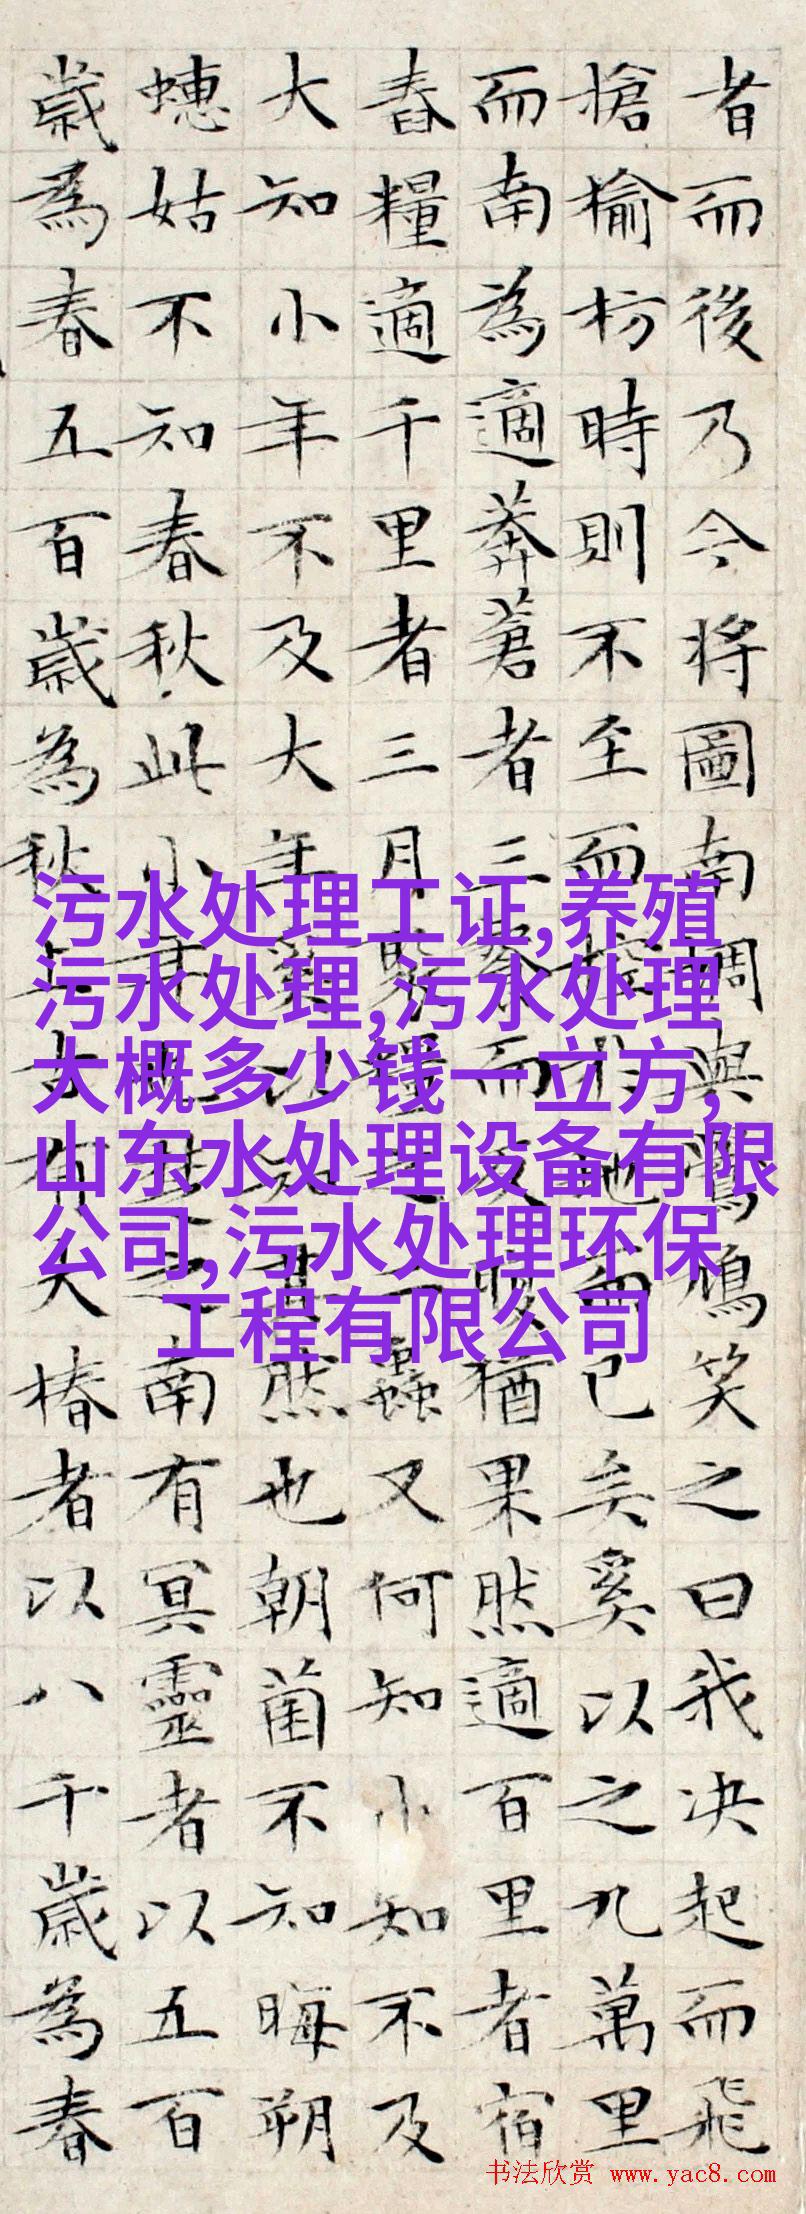 者而後乃今将圖南蜩與鷽鳩笑之曰我决起而飛
搶榆枋時則不至而控於地而已矣奚以之九萬里
而南為適莽蒼者三飡而反腹猶果然適百里者宿
舂糧適千里者三月聚糧之二蟲又何知小知不及
大知小年不及大年奚以知其然也朝菌不知晦朔
蟪姑不知春秋此小年也楚之南有冥靈者以五百
歲為春五百歲為秋上古有大椿者以八千歲為春
污水处理工证,养殖
污水处理,污水处理
大概多少钱一立方,
山东水处理设备有限
公司,污水处理环保
工程有限公司
书法欣赏 www.yac8.com